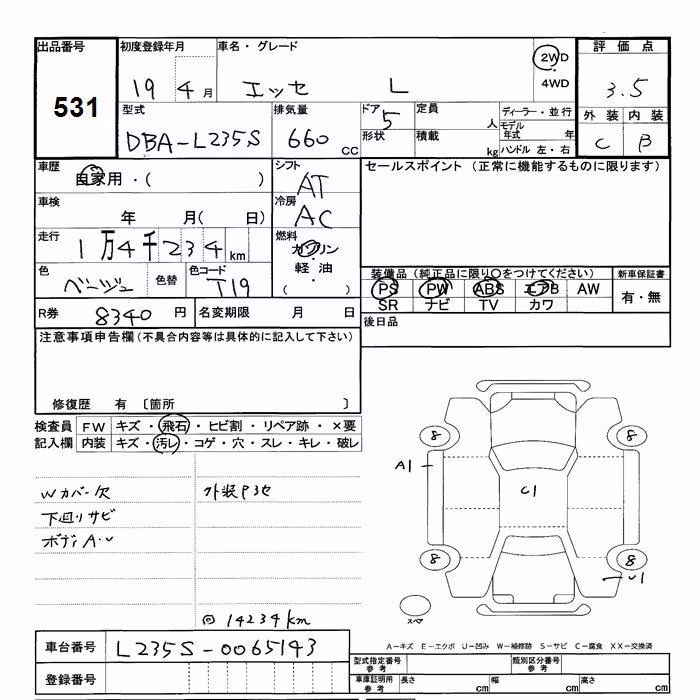 出品番号 初度登録年月 車名・グレード 評価点
531 19 4月 エッセ L 2WD 4WD 3.5
型式 排気量 ドア 定員 ディーラー・並行 外装 内装
DBA-L235S 660 CC 5 人 モデル年式 年 C B
形状 積載 kg ハンドル 左・右
車歴 シフト セールスポイント (正常に機能するものに限ります)
自家用・( ) AT
車検 冷房
年 月( 日) AC
走行 燃料
1万4千234km ガソリン
色 色替 色コード ・軽油
ベージュ T19 ( )
装備品(純正品に限り○をつけてください) 新車保証書
PS PW ABS エアB AW 有・無
SR ナビ TV カワ
R券 8340円 名変期限 月 日 後日品
注意事項申告欄(不具合内容等は具体的に記入して下さい)
修復歴 有 〔箇所 〕
検査員 FW キズ・飛石・ヒビ割・リペア跡・×要
記入欄 内装 キズ・汚レ・コゲ・穴・スレ・キレ・破レ
8 8
A1
Wカバー欠 外装P3セ C1
下回りサビ
ボディA・U
8 8
U1
スペア
◎14234km
A-キズ E-エクボ U-凹み W-補修跡 S-サビ C-腐食 XX-交換済
車台番号 L235S-0065143
型式指定番号 参考 類別区分番号 参考
登録番号 車庫証明用 参考 長さ cm 幅 cm 高さ cm